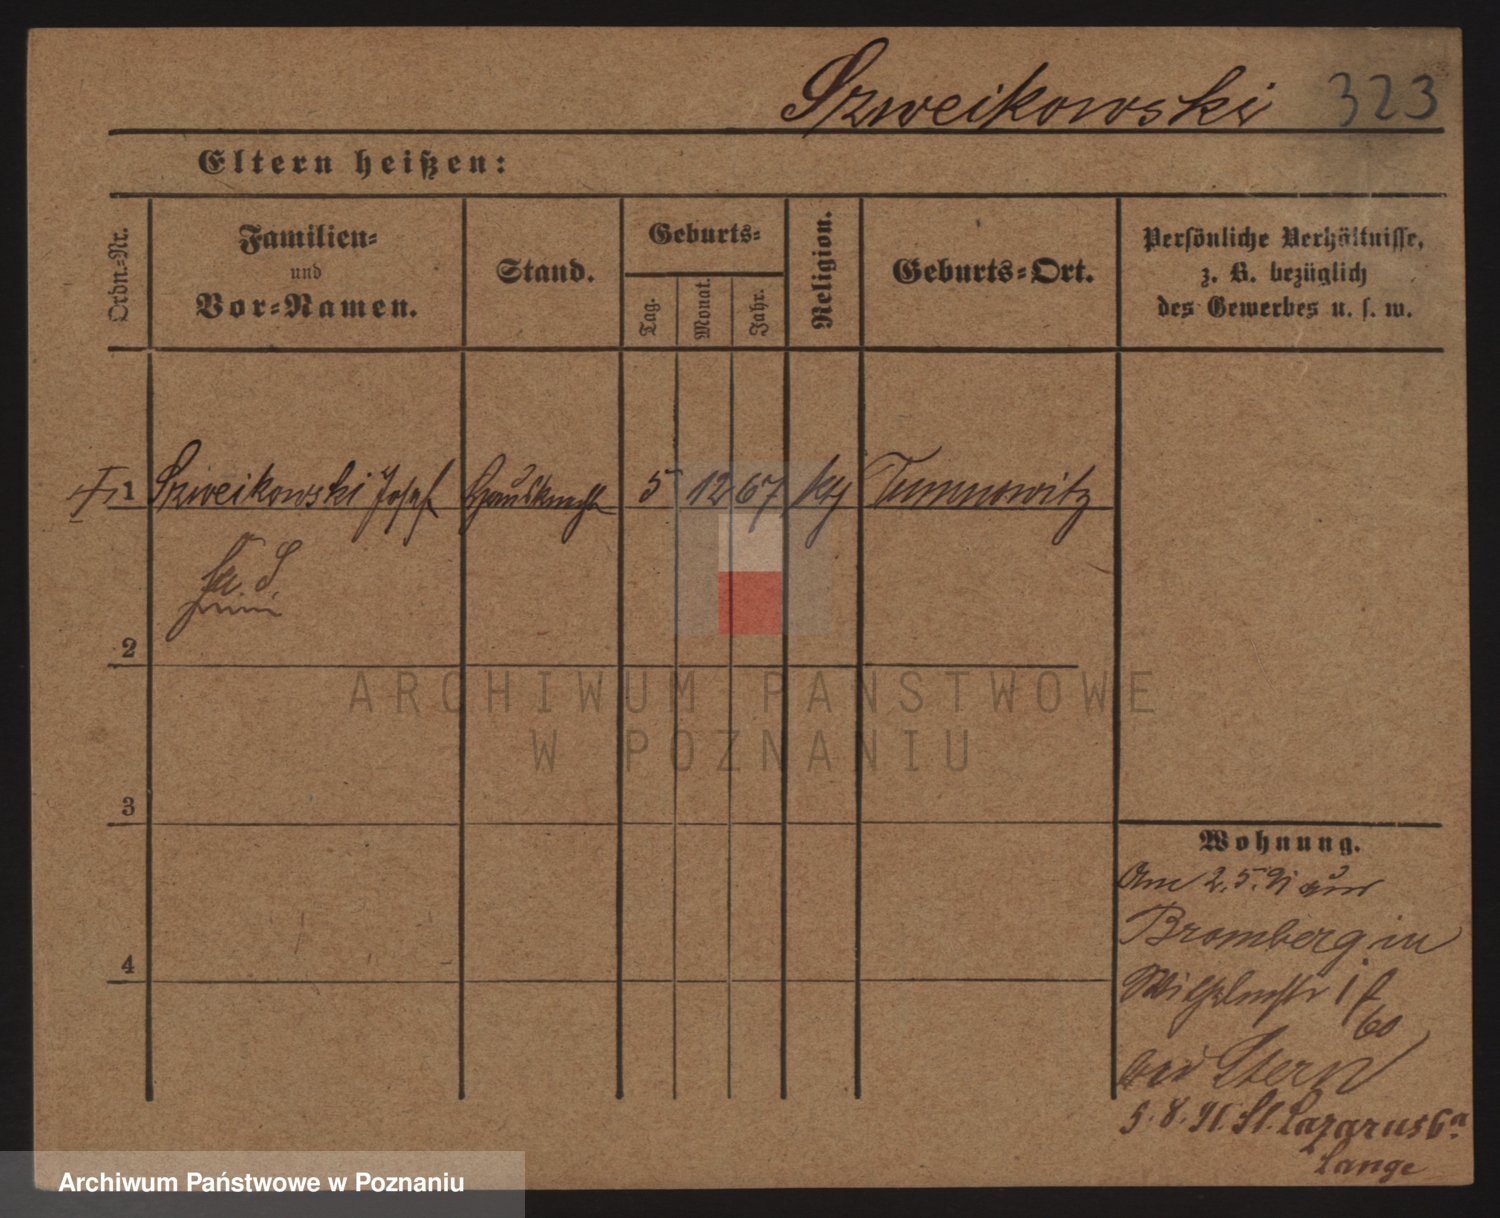 Szweikowski 323
Eltern heißen:
Ordn.-Nr.
Familien-
und
Vor-Namen.
Stand.
Geburts-
Tag.
Monat.
Jahr.
Religion.
Geburts-Ort.
Persönliche Verhältnisse,
z. B. bezüglich
des Gewerbes u. s. w.
1 Szweikowski Josef Hausknecht 5 12 67 kg
2
3
4
Wohnung.
Am 2. 5. 91 aus
Bromberg in
Wilhelmstr 1
60
bei Stern
5. 8. 91. St. Lazarus 6a
Lange
ARCHIWUM PAŃSTWOWE
W POZNANIU
Archiwum Państwowe w Poznaniu